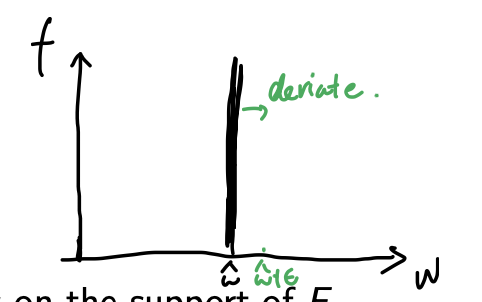 f
deviate.
ŵ ŵ+ε w
on the support of F